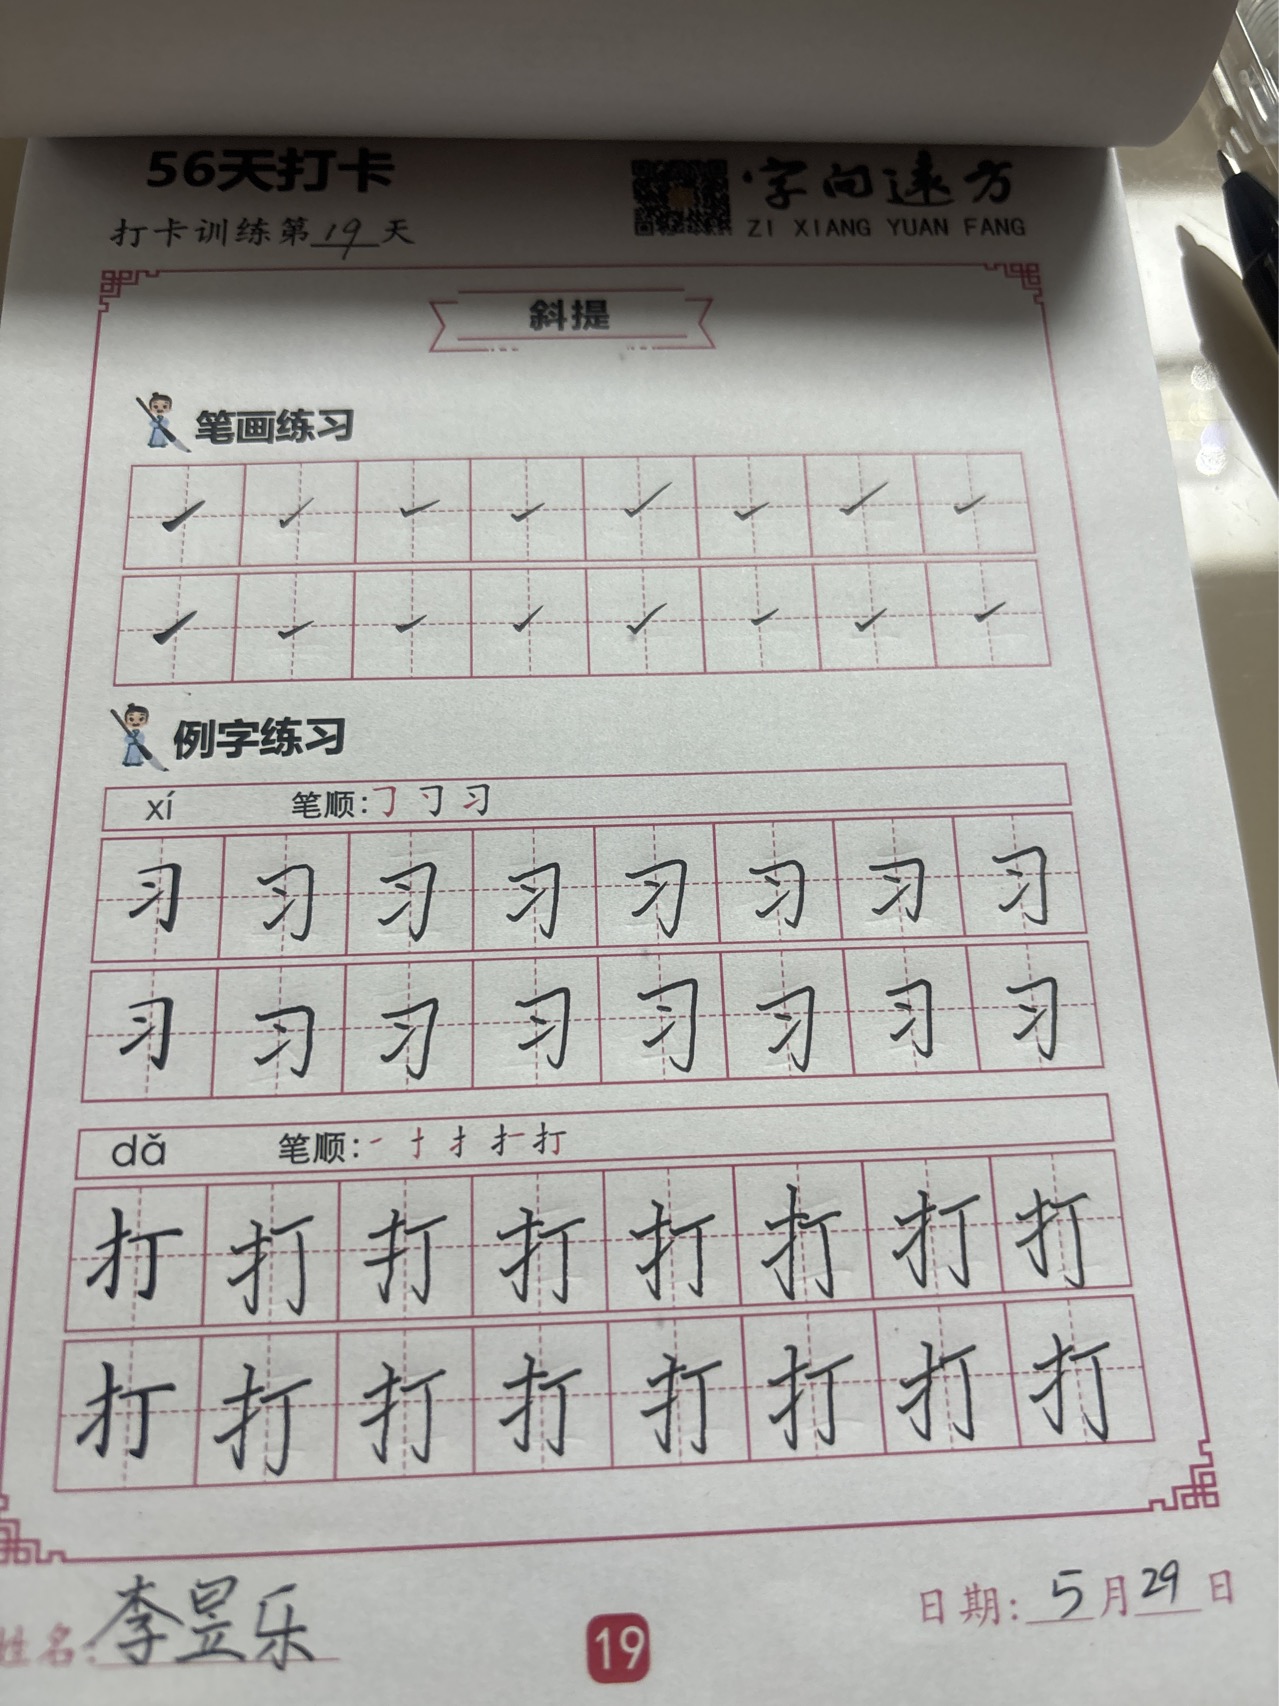 56天打卡
字向远方
打卡训练第19天
ZI XIANG YUAN FANG
斜提
笔画练习
例字练习
xí 笔顺:㇆ 刁 习
习 习 习 习 习 习 习 习
习 习 习 习 习 习 习 习
dǎ 笔顺:一 十 扌 扌一 打
打 打 打 打 打 打 打 打
打 打 打 打 打 打 打 打
姓名:李昱乐
日期:5月29日
19